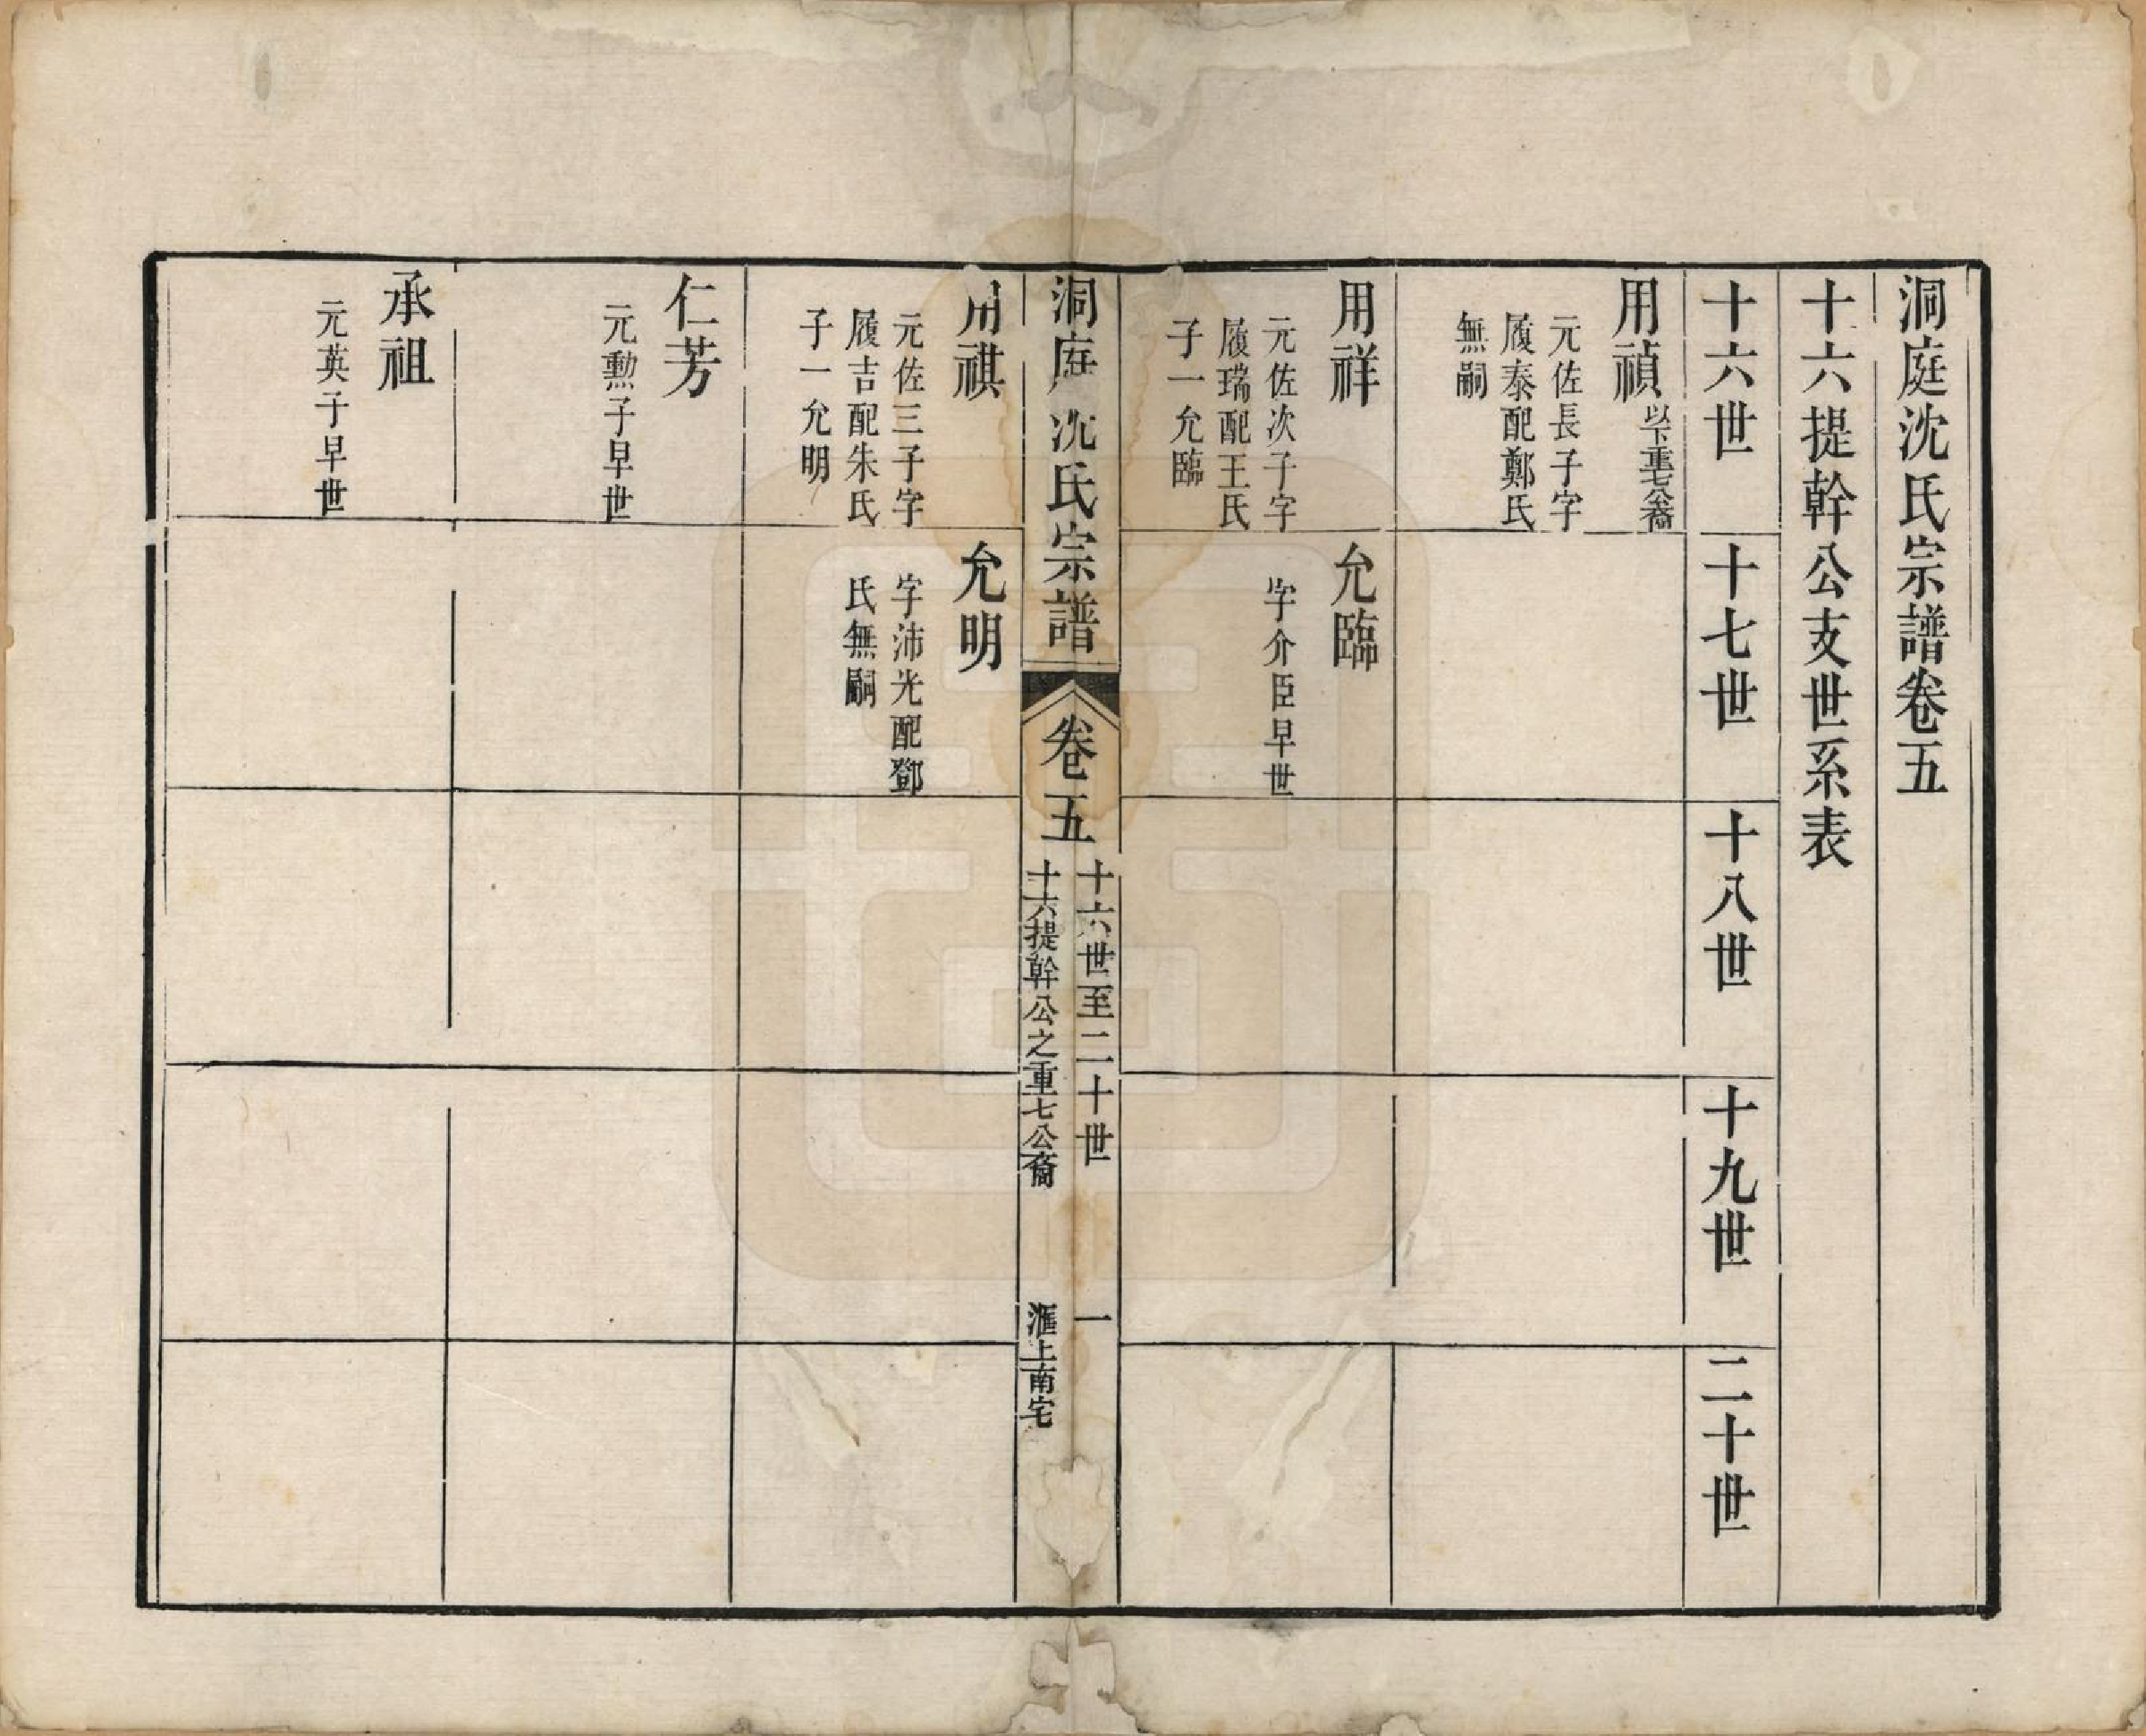 洞庭沈氏宗譜卷五
十六提幹公支世系表
十六世
十七世
十八世
十九世
二十世
用禎
以下重七公裔
元佐長子字
履泰配鄭氏
無嗣
用祥
元佐次子字
履瑞配王氏
子一允臨
允臨
字介臣早世
洞庭沈氏宗譜
卷五
十六世至二十世
十六提幹公之重七公裔
一
滙上南宅
用祺
元佐三子字
履吉配朱氏
子一允明
允明
字沛光配鄧
氏無嗣
仁芳
元勲子早世
承祖
元英子早世